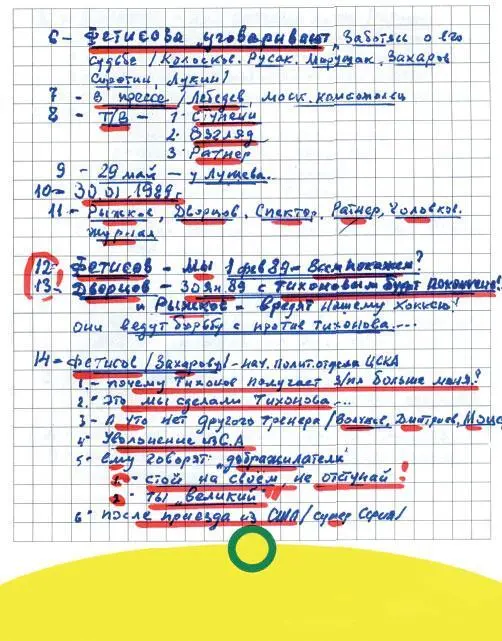 6 - Фетисова "уговаривают", Заботясь о его
судьбе / Колосков. Русак. Марущак, Захаров
Сиротин, Лукин/
7 - В прессе / Лебедев, моск. комсомолец
8 - Т/В - 1. Ступени
2. Взгляд
3. Ратнер
9 - 29 май - у Лужева..
10 - 30.01.1989г
11 - Рыжков, Дворцов, Спектор, Ратнер, Чоловков.
Журнал
12 - Фетисов - Мы 1 фев 89 - Всем покажем?
13 - Дворцов - 30 ян. 89 с Тихоновым будет покончено!
и Рыжков - вредят нашему хоккею!
Они ведут борьбу с против Тихонова....
14 - Фетисов / Захарову/ - нач. полит.отдела ЦСКА
1. - почему Тихонов получает з/пл больше меня?
2. - Это мы сделали Тихонова...
3 - А что нет другого тренера / Волчков, Дмитриев,
4. Увольнение из С.А
5. ему говорят "доброжилатели"
1. - стой на своём, не отступай!
2. ты "великий"
6. после приезда из США / супер Серия/